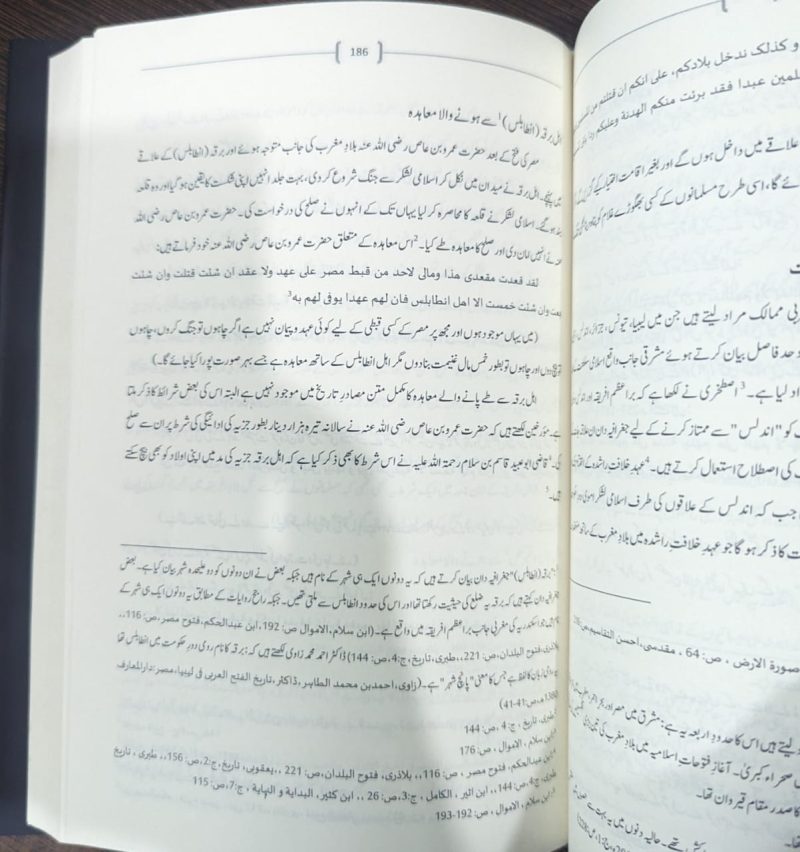 186
اہل برقہ (انطابلس)1 سے ہونے والا معاہدہ
مصر کی فتح کے بعد حضرت عمرو بن عاص رضی اللہ عنہ بلادِ مغرب کی جانب متوجہ ہوئے اور برقہ (انطابلس) کے علاقے
میں پہنچے۔ اہل برقہ نے میدان میں نکل کر اسلامی لشکر سے جنگ شروع کر دی، بہت جلد انہیں اپنی شکست کا یقین ہو گیا اور وہ قلعہ
بند ہو گئے۔ اسلامی لشکر نے قلعہ کا محاصرہ کر لیا یہاں تک کے انہوں نے صلح کی درخواست کی۔ حضرت عمرو بن عاص رضی اللہ
عنہ نے انہیں امان دی اور صلح کا معاہدہ طے کیا۔2 اس معاہدہ کے متعلق حضرت عمرو بن عاص رضی اللہ عنہ خود فرماتے ہیں:
لقد قعدت مقعدی هذا ومالی لاحد من قبط مصر علی عهد ولا عقد ان شئت قتلت وان شئت
بعت وان شئت خمست الا اهل انطابلس فان لهم عهدا یوفی لهم به3
(میں یہاں موجود ہوں اور مجھ پر مصر کے کسی قبطی کے لیے کوئی عہد و پیمان نہیں ہے اگر چاہوں تو جنگ کروں، چاہوں
تو بیچ دوں اور چاہوں تو بطور خمس مال غنیمت بنا دوں مگر اہل انطابلس کے ساتھ معاہدہ ہے جسے بہر صورت پورا کیا جائے گا۔)
اہل برقہ سے طے پانے والے معاہدہ کا مکمل متن مصادرِ تاریخ میں موجود نہیں ہے البتہ اس کی بعض شرائط کا ذکر ملتا
ہے۔ مورخین لکھتے ہیں کہ حضرت عمرو بن عاص رضی اللہ عنہ نے سالانہ تیرہ ہزار دینار بطور جزیہ کی ادائیگی کی شرط پر ان سے صلح
کی۔4 قاضی ابو عبید قاسم بن سلام رحمۃ اللہ علیہ نے اس شرط کا بھی ذکر کیا ہے کہ اہل برقہ جزیہ کی مد میں اپنی اولاد کو بھی بیچ سکتے
ہیں۔
"برقہ (انطابلس)" جغرافیہ دان بیان کرتے ہیں کہ یہ دونوں ایک ہی شہر کے نام ہیں جبکہ بعض نے ان دونوں کو دو علیحدہ شہر بیان کیا ہے۔ بعض
جغرافیہ دان کہتے ہیں کہ برقہ ضلع کی حیثیت رکھتا تھا اور اس کی حدود انطابلس سے ملتی تھیں۔ جبکہ راجح روایات کے مطابق یہ دونوں ایک ہی شہر کے
نام ہیں جو اسکندریہ کی مغربی جانب براعظم افریقہ میں واقع ہے۔ (ابن سلام، الاموال ص: 192، ابن عبدالحکم، فتوح مصر، ص: 116،،
بلاذری، فتوح البلدان، ص: 221،، طبری، تاریخ، ج: 4، ص: 144) ڈاکٹر احمد محمد زاوی لکھتے ہیں کہ: برقہ کا نام رومی دورِ حکومت میں انطابلس تھا
زبان کا لفظ ہے جس کا معنی "پانچ شہر" ہے۔ (زاوی، احمد بن محمد الطاہر، ڈاکٹر، تاریخ الفتح العربی فی لیبیا، مصر: دارالمعارف
ص: 41-41)
طبری، تاریخ، ج: 4، ص: 144
ابن سلام، الاموال، ص: 176
ابن عبدالحکم، فتوح مصر، ص: 116،، بلاذری، فتوح البلدان، ص: 221،، یعقوبی، تاریخ، ج: 2، ص: 156،، طبری، تاریخ
ج: 4، ص: 144،، ابن اثیر، الکامل، ج: 3، ص: 26،، ابن کثیر، البدایة و النہایة، ج: 7، ص: 115
ابن سلام، الاموال، ص: 192-193
و کذلک ندخل بلادکم، علی انکم ان قتلتم من
لمین عبدا فقد برئت منکم الهدنة وعلیکم
علاقے میں داخل ہوں گے اور بغیر اقامت اختیار کیے
ئے گا، اسی طرح مسلمانوں کے کسی بھگوڑے غلام کو
بی ممالک مراد لیتے ہیں جن میں لیبیا، تیونس،
حد فاصل بیان کرتے ہوئے مشرقی جانب واقع اسلامی
اد لیا ہے۔3 اصطخری نے لکھا ہے کہ براعظم افریقہ
کو "اندلس" سے ممتاز کرنے کے لیے جغرافیہ دان
کی اصطلاح استعمال کرتے ہیں۔4 عہدِ خلافتِ راشدہ کے
جب کہ اندلس کے علاقوں کی طرف اسلامی لشکر
ت کا ذکر ہو گا جو عہدِ خلافتِ راشدہ میں بلادِ مغرب کے
صورة الارض، ص: 64، مقدسی، احسن التقاسیم
لیتے ہیں اس کا حدودِ اربعہ یہ ہے: مشرق میں مصر
صحراء کبریٰ۔ آغازِ فتوحاتِ اسلامیہ میں بلادِ مغرب کی
کا صدر مقام قیروان تھا۔